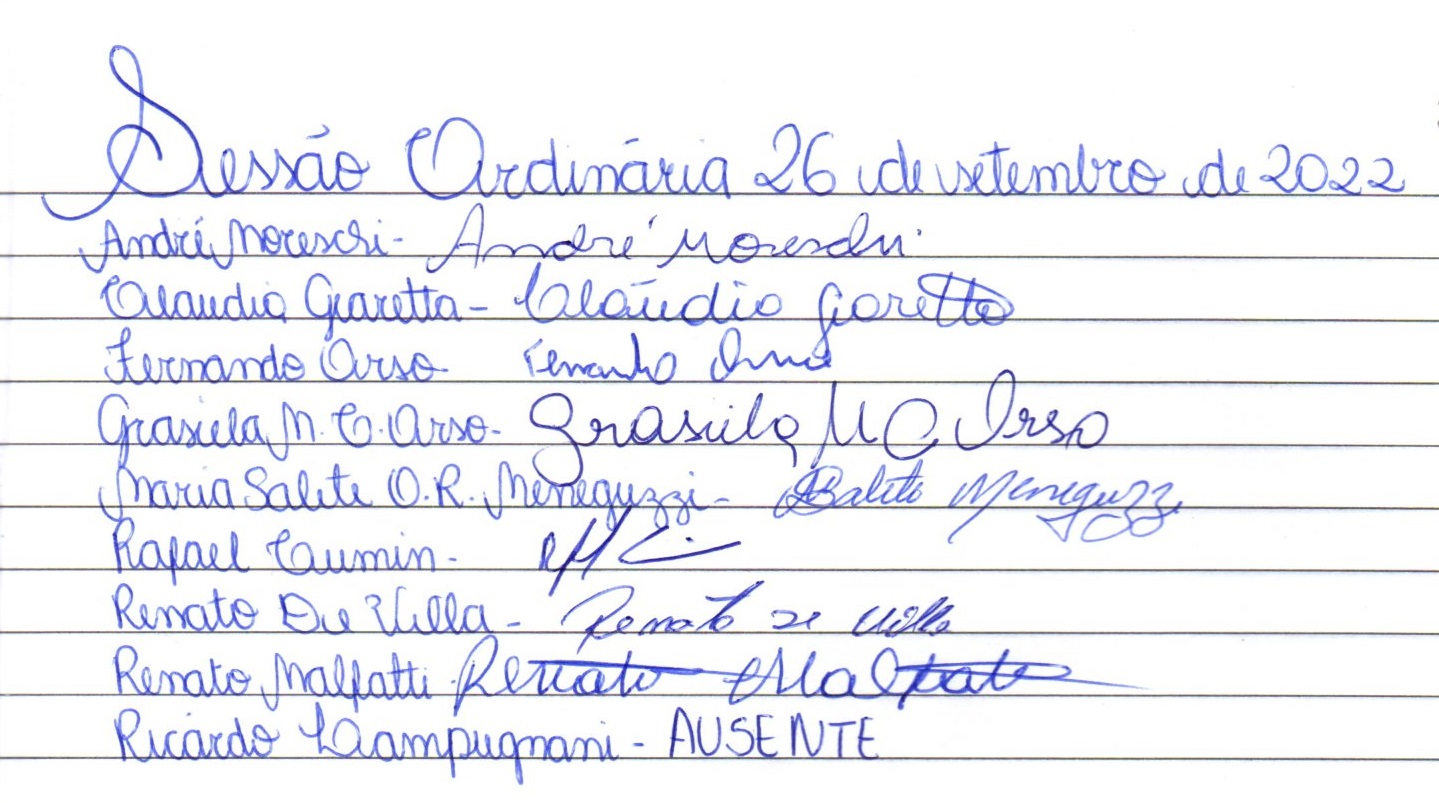 Sessão Ordinária 26 de setembro de 2022
André Moreschi - André Moreschi
Claudio Giaretta - Claúdio Giaretta
Fernando Orso - Fernando Orso
Grasiela M. C. Orso - Grasiela M C Orso
Maria Salete O. R. Meneguzzi - Salete Meneguzzi
Rafael Cumin -
Renato De Villa - Renato De Villa
Renato Malfatti Renato Malfatti
Ricardo Campugnani - AUSENTE